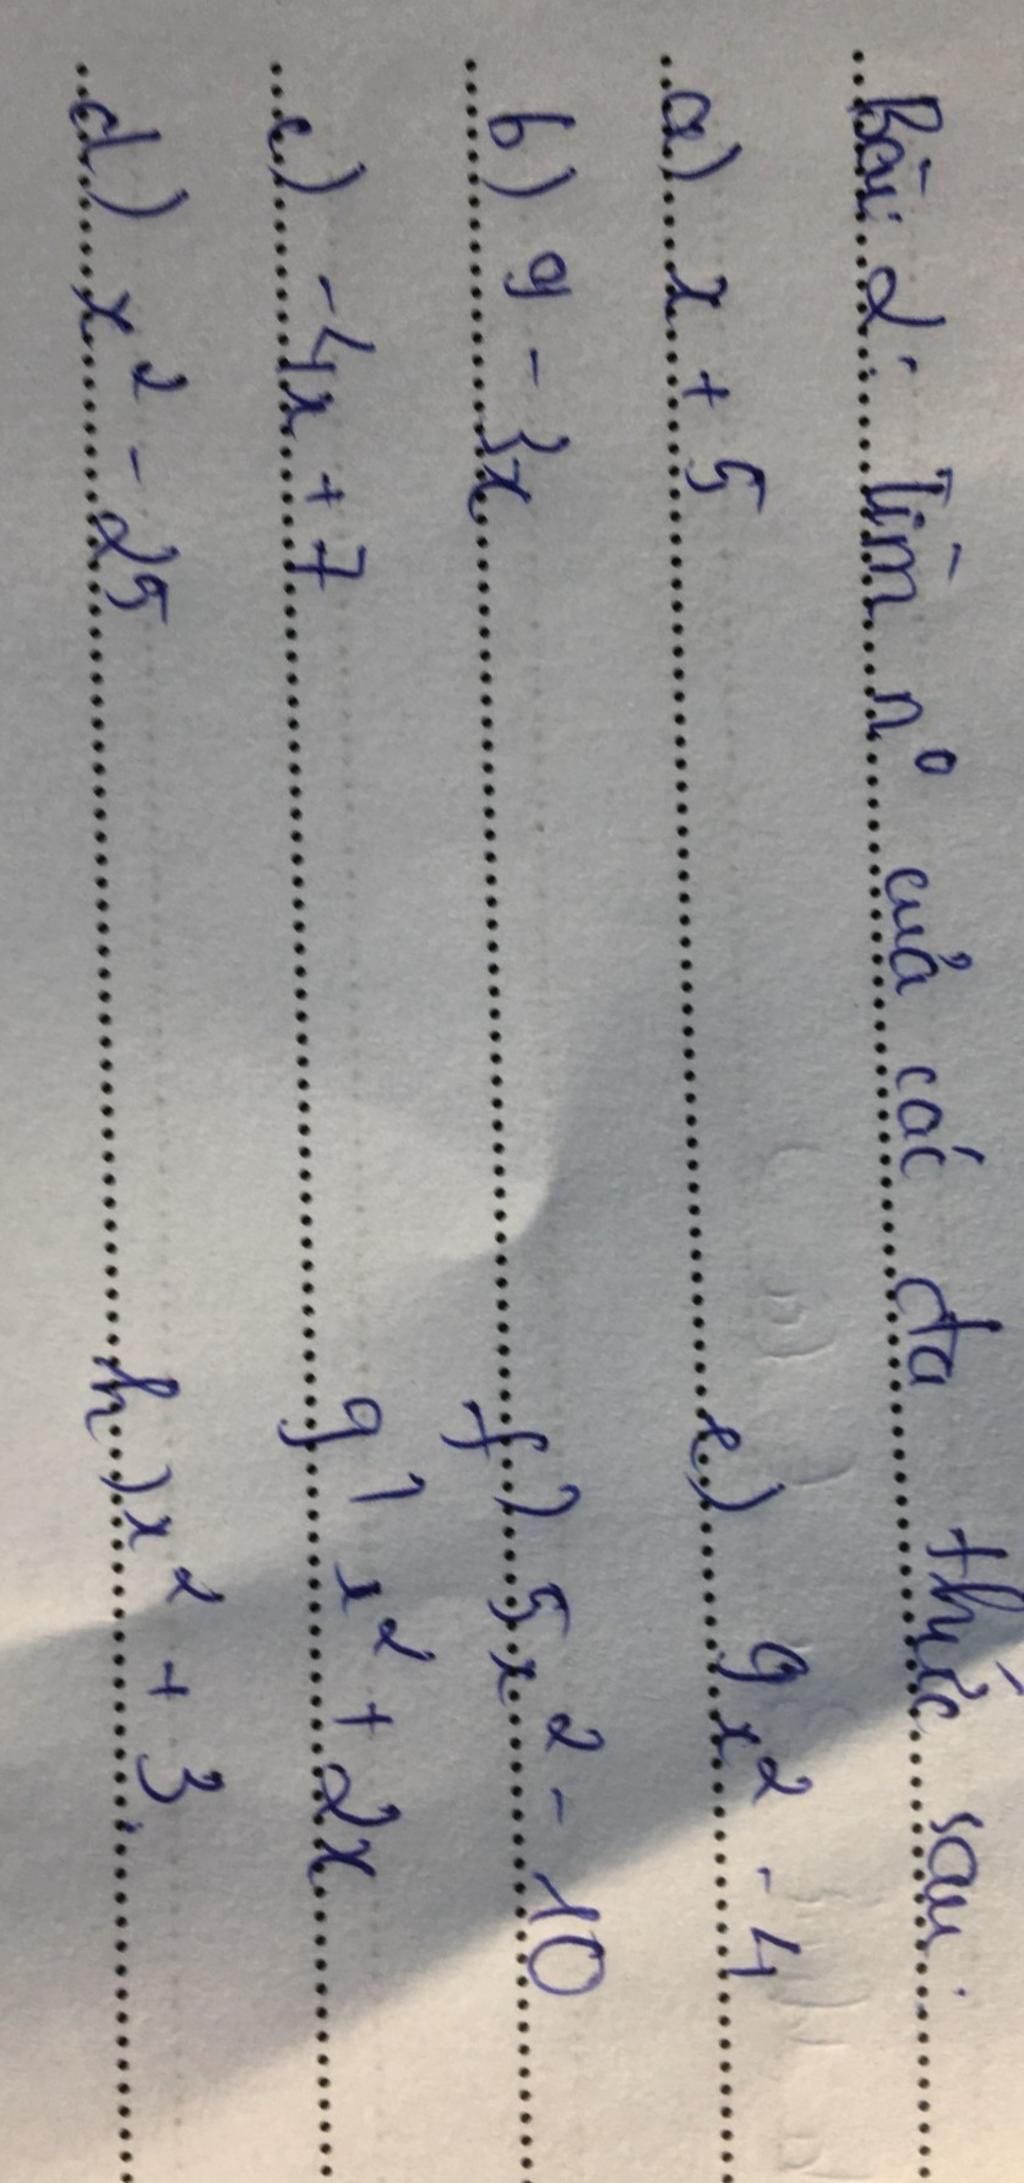 Bài 2: Tìm nº của các đa thức sau:
a) x + 5 e) 9x² - 4
b) 9 - 3x f) 5x² - 10
c) -4x + 7 g) x² + 2x
d) x² - 25 h) x² + 3.